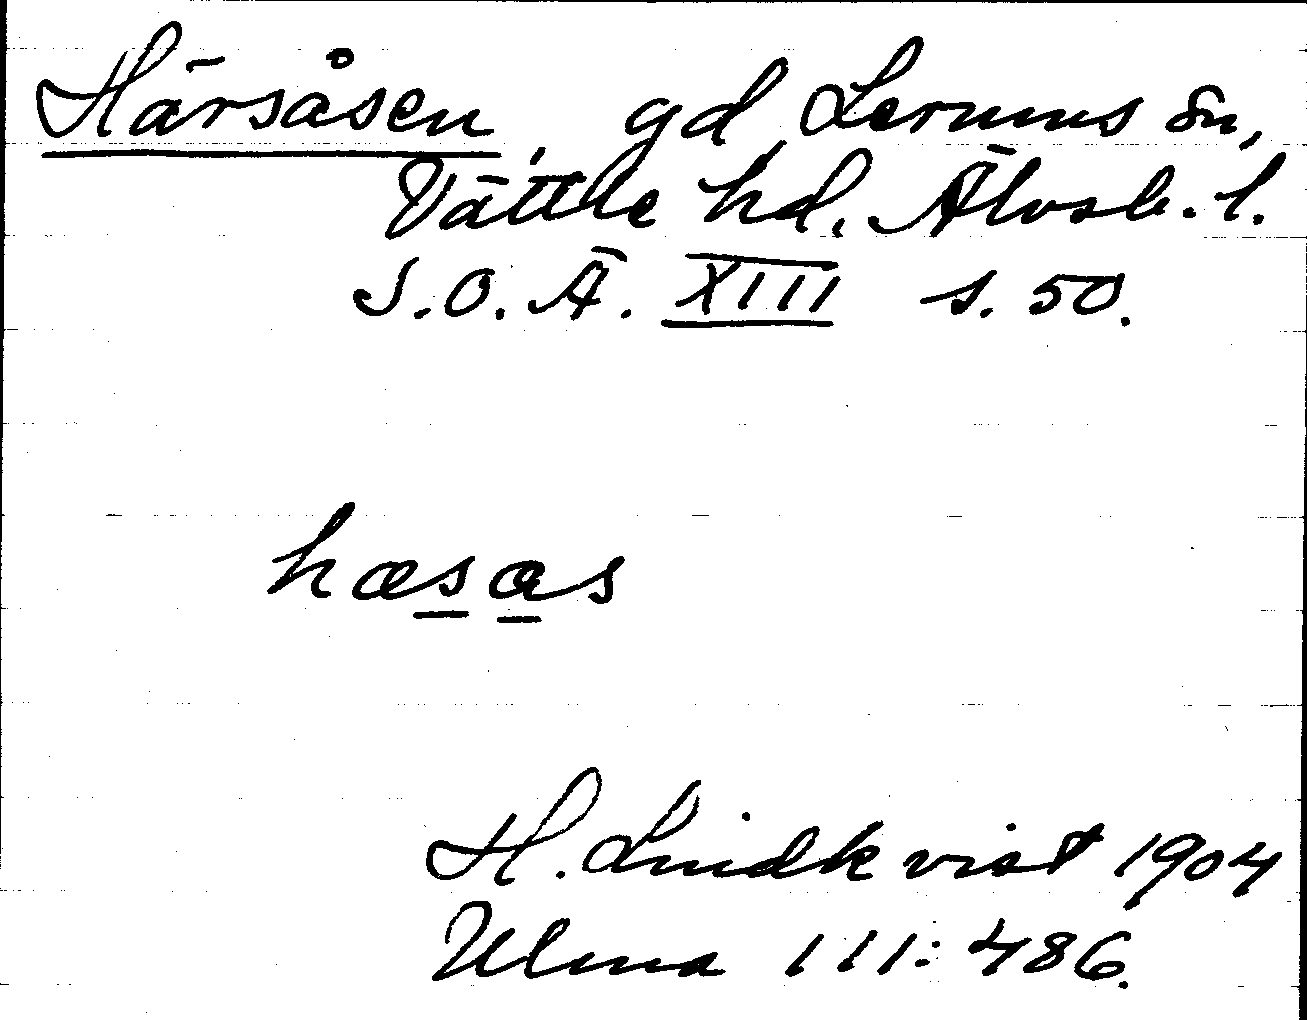 Härsåsen, gd, Lerums sn,
Vättle hd. Älvsb. l.
S. O. Ä. XIII s. 50.
hæsas
H. Lindkvist 1904
Ulma 111:486.